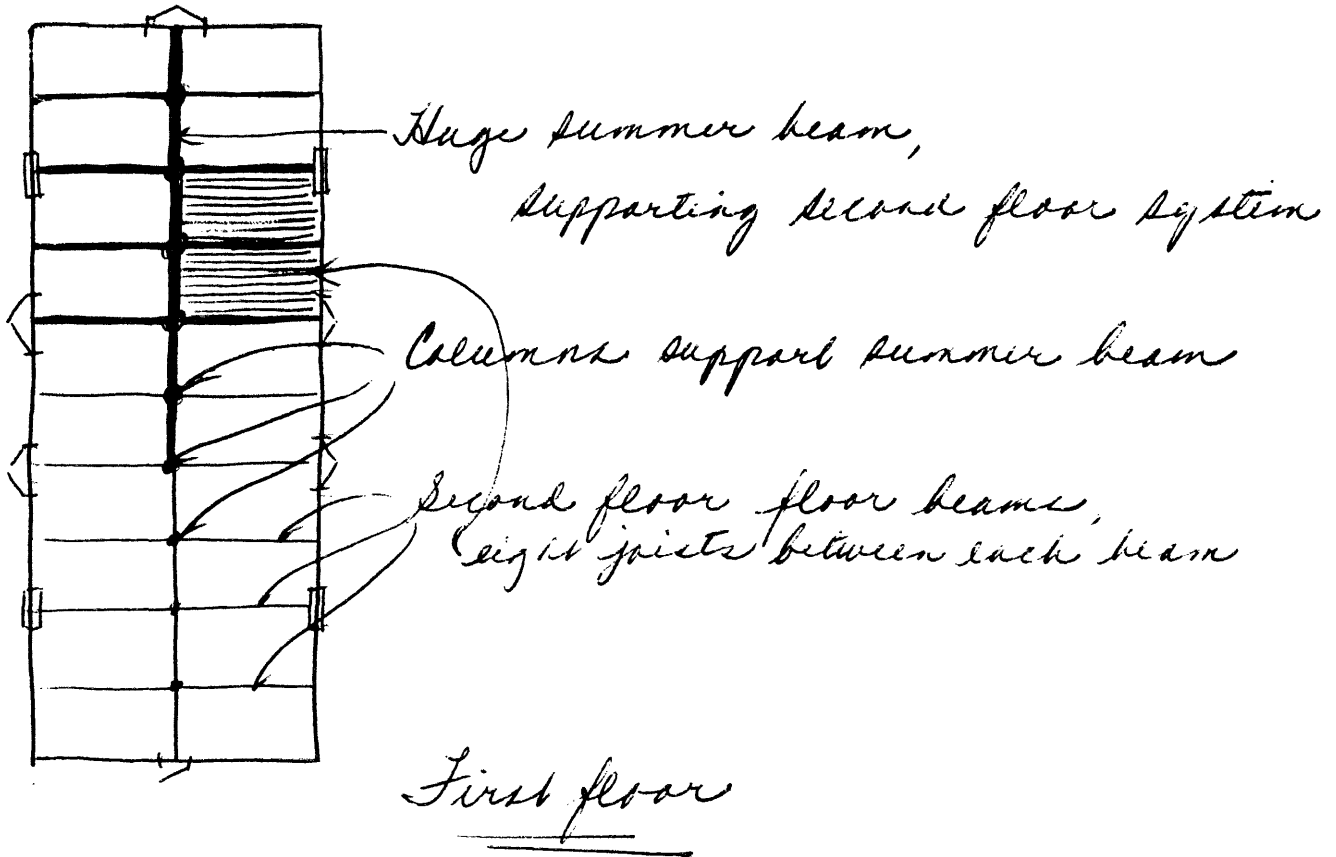 Huge summer beam,
supporting second floor system
Columns support summer beam
Second floor floor beams,
eight joists between each beam
First floor